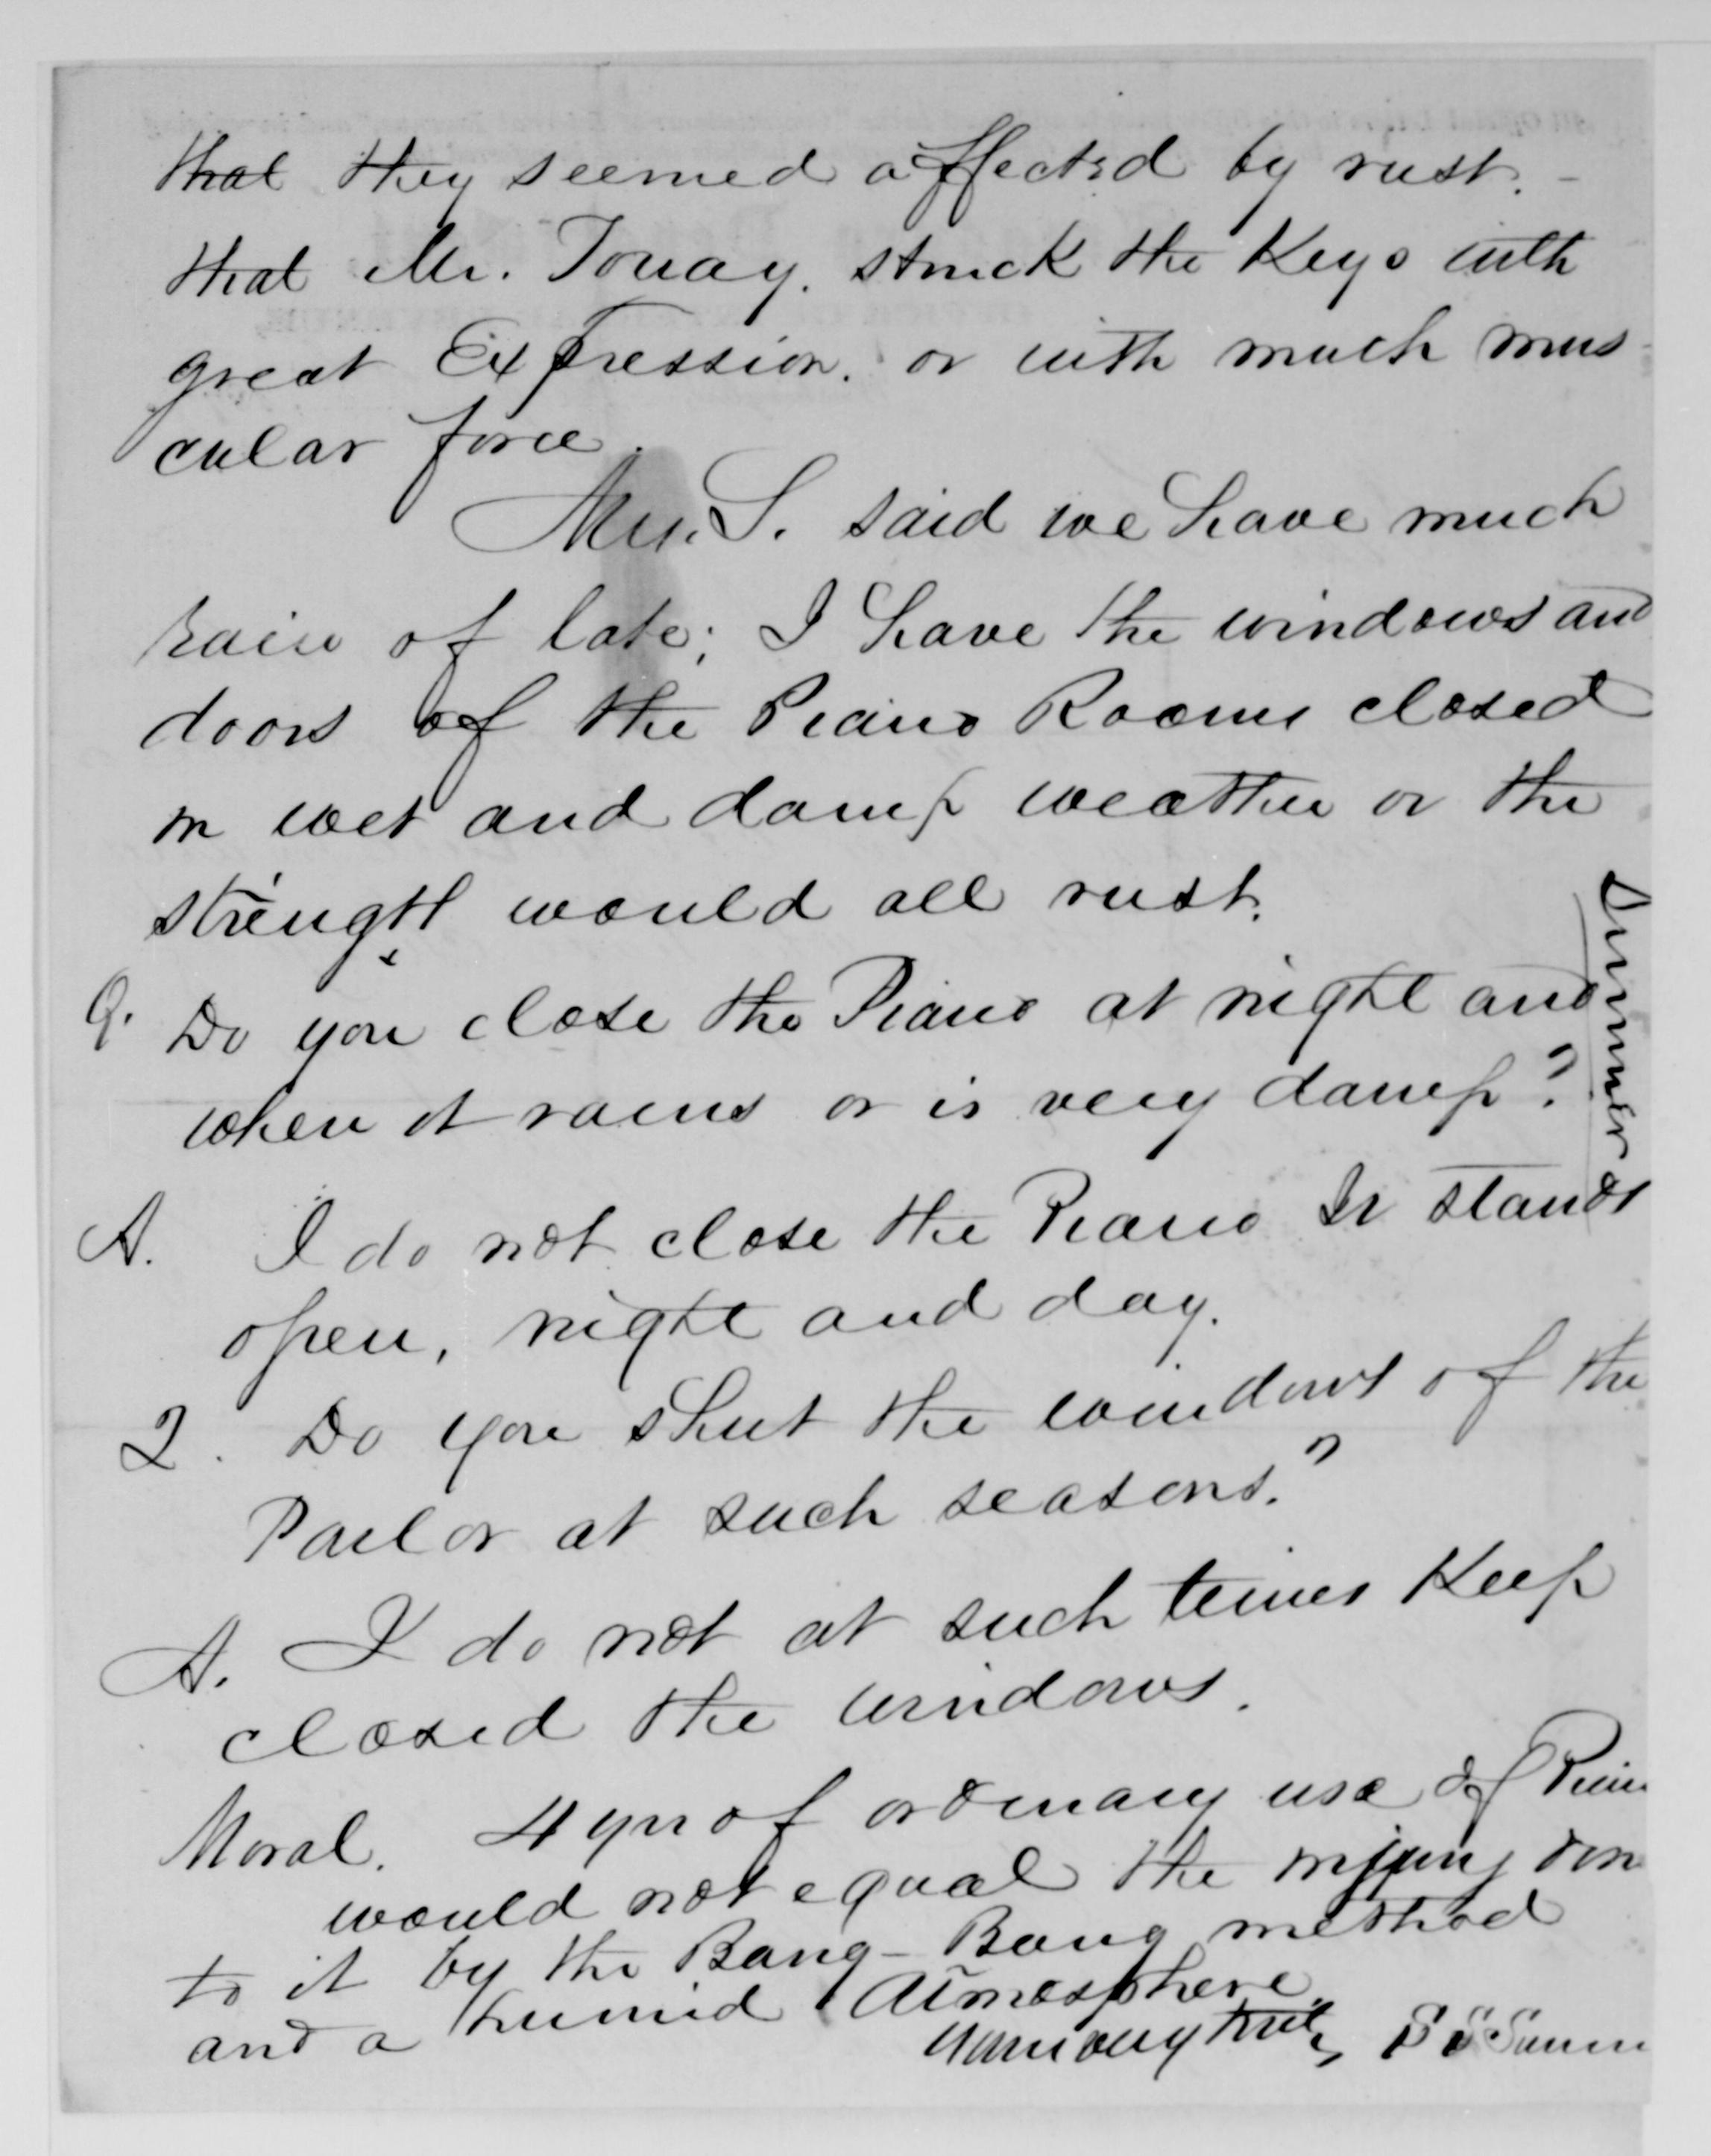 that they seemed affected by rust. -
that Mr. Touay. struck the Keys with
great Expression. or with much mus
cular force.
Mrs. S. said we have much
rain of late; I have the windows and
doors of the Piano Rooms closed
in wet and damp weather or the
strength would all rust.
Q. Do you close the Piano at night and
when it rains or is very damp?
A. I do not close the Piano It stands
open, night and day.
Q. Do you shut the windows of the
Parlor at such seasons?
A. I do not at such times Keep
closed the windows.
Moral. 4 yrs of ordinary use of
would not equal the injury don
to it by the Bang-Bang method
and a humid Atmosphere.
Yours very truly